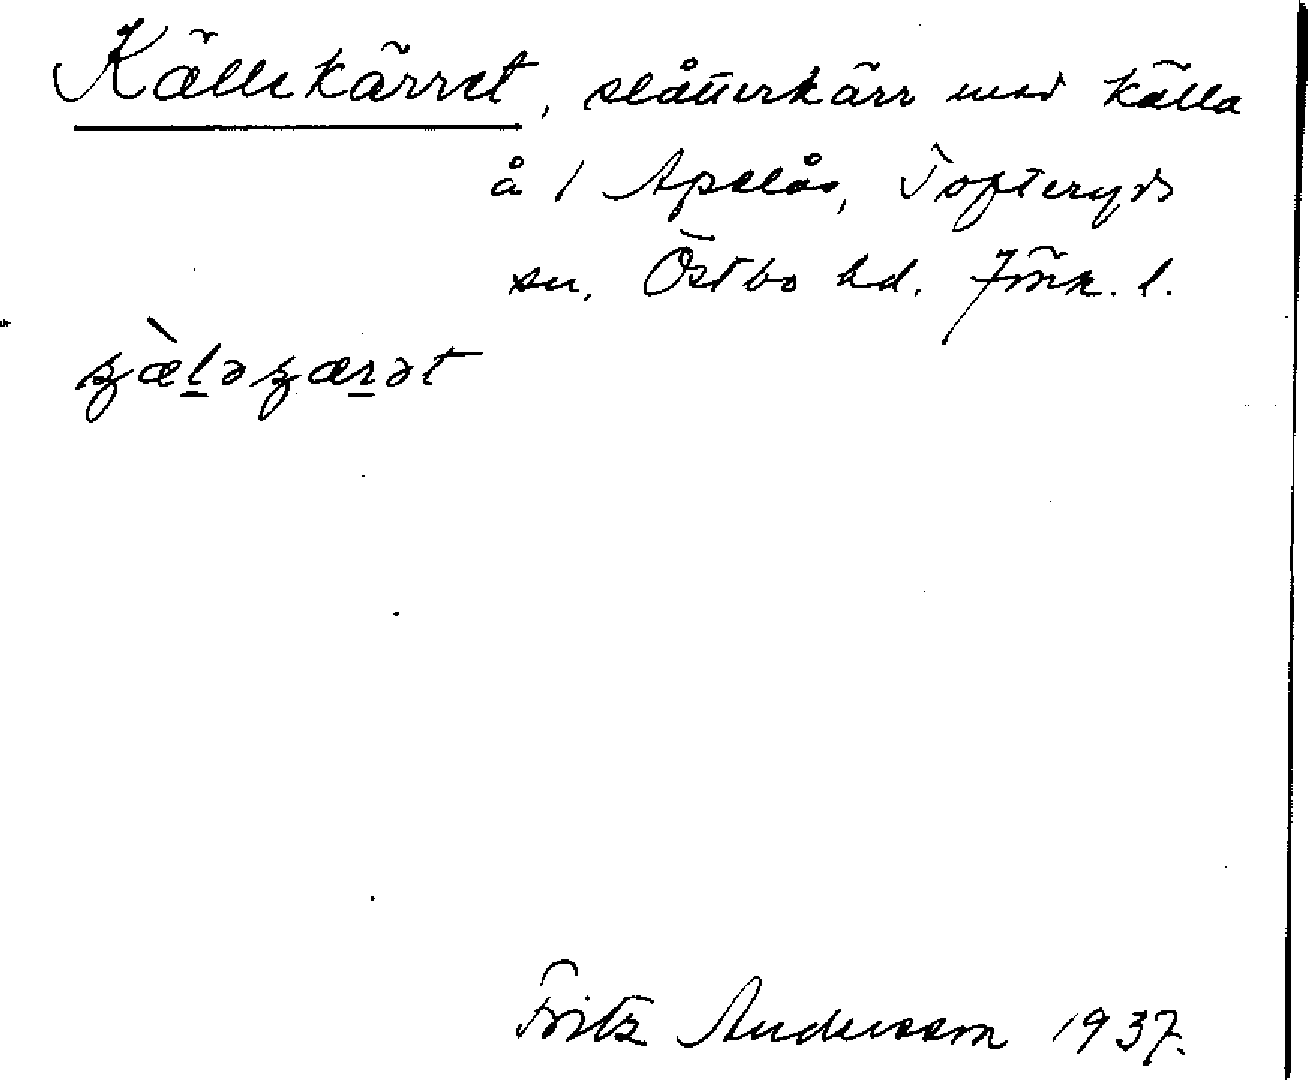 Källekärret, slåtterkärr med källa
å 1 Apelås, Tofteryds
sn. Östbo hd. Jönk. l.
ȥæ̀l̲əȥær̲ət
Fritz Andersson 1937.